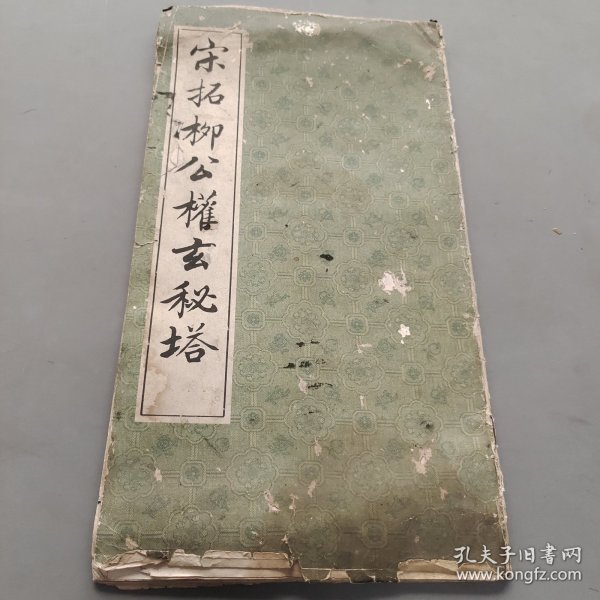 宋拓柳公權玄秘塔
孔夫子旧書网
www.kongfz.com